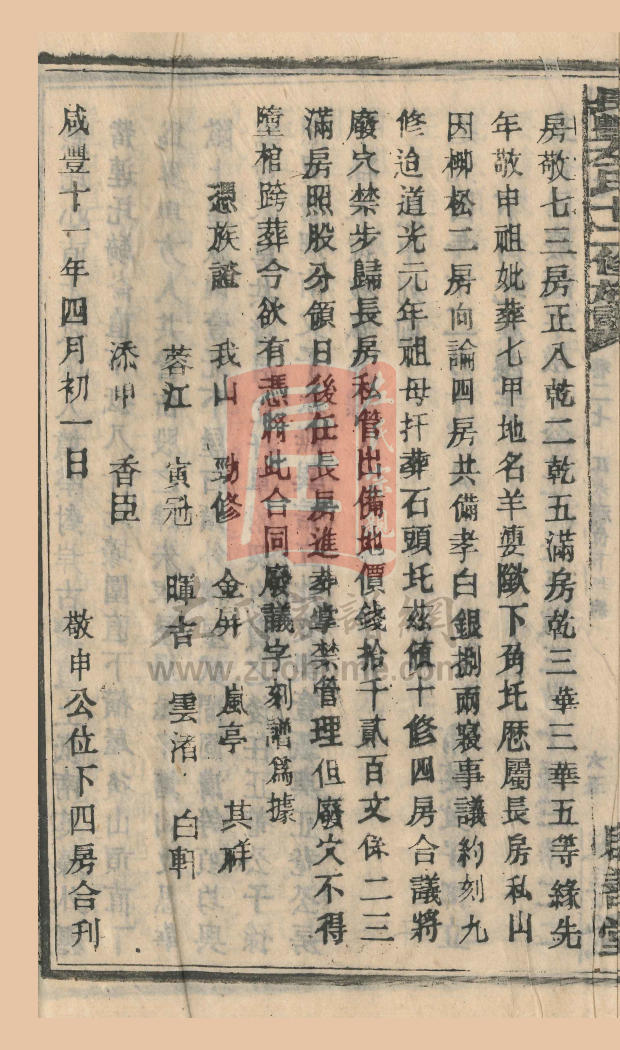 房敬七三房正入乾二乾五滿房乾三華三華五等緣先
年敬申祖妣葬七甲地名羊婁歇下角圫歷屬長房私山
因柳松二房向論四房共備孝白銀捌兩寢事議約刻九
修迨道光元年祖母扦葬石頭圫茲值十修四房合議將
廢穴禁步歸長房私管出備地價錢拾千貳百文係二三
滿房照股分領日後任長房進葬掌禁管理但廢穴不得
墮棺跨葬今欲有憑將此合同廢議字刻譜爲據
憑族證 我山 勁修 金屏 嵐亭 其祥
蓉江 寅冠 暉吉 雲渚 白軒
添申 香臣
咸豐十一年四月初一日 敬申公位下四房合刊
www.zuohome.com